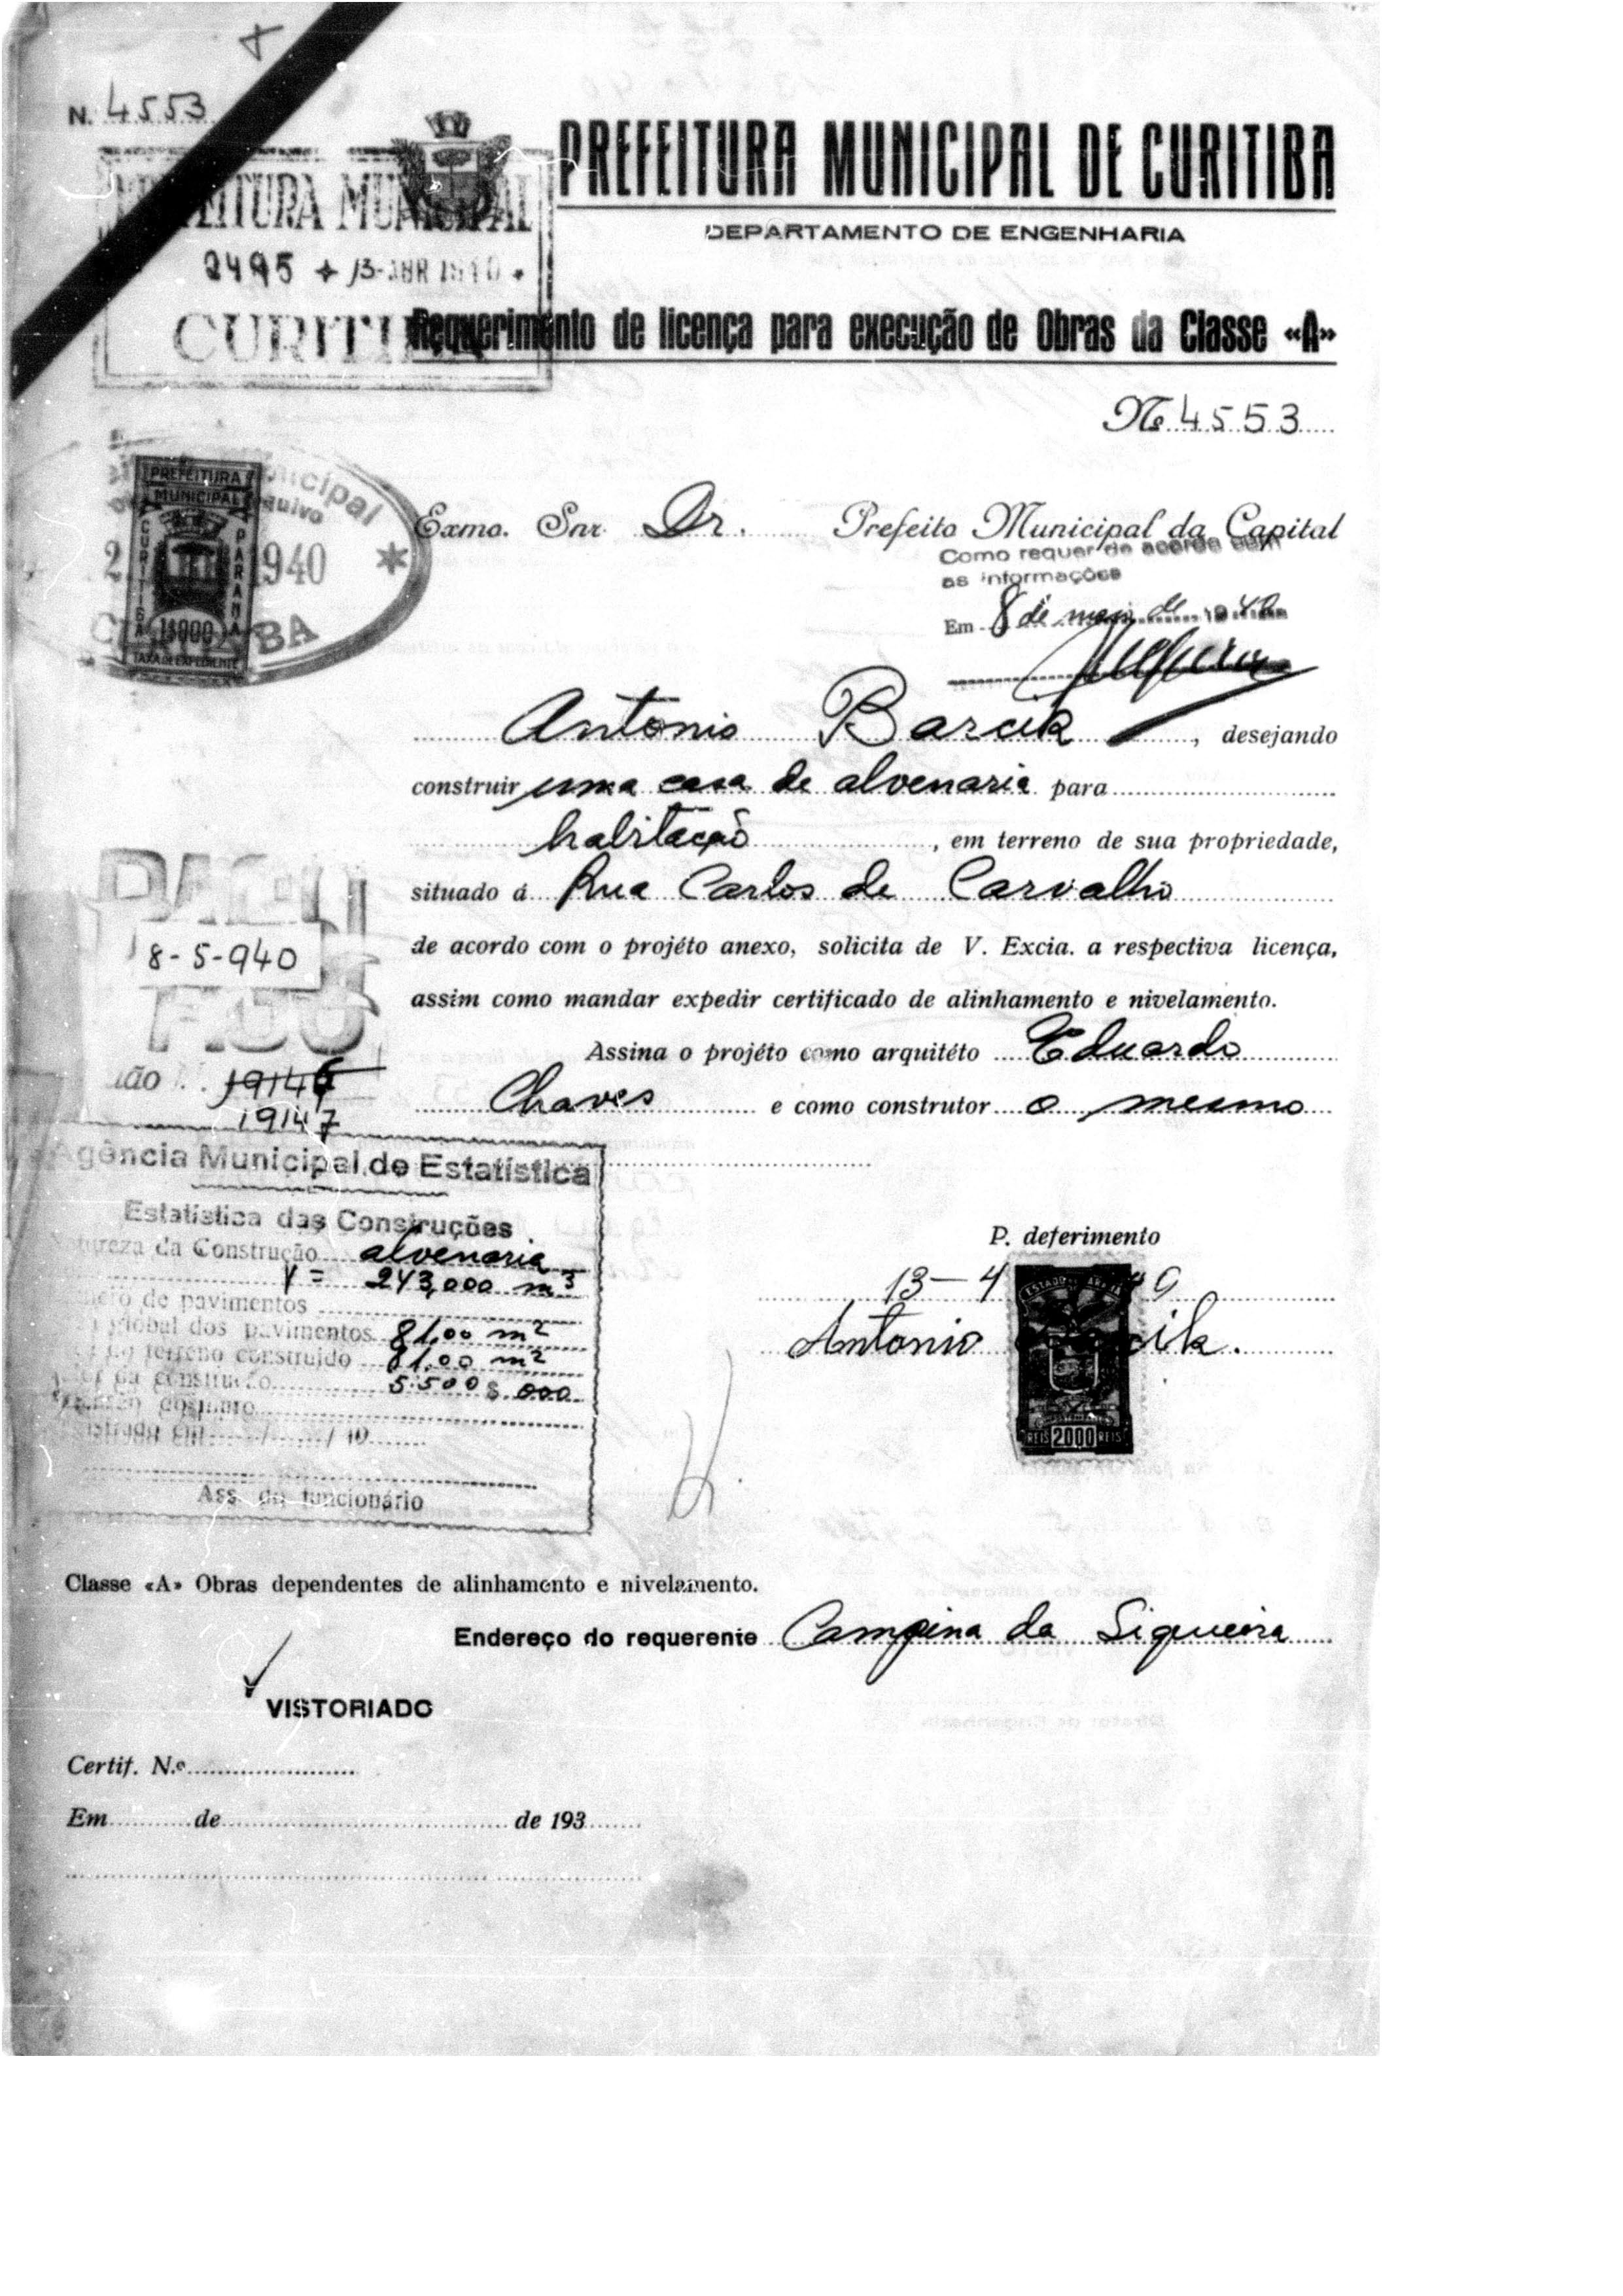 N. 4553
PREFEITURA MUNICIPAL DE CURITIBA
MUNICIPAL
DEPARTAMENTO DE ENGENHARIA
2495 13-ABR 1940
CURITI
Requerimento de licença para execução de Obras da Classe «A»
No 4553
PREFEITURA
MUNICIPAL
CURITIBA PARANÁ
1$000
TAXA DE EXPEDIENTE
1940
Exmo. Snr. Dr. Prefeito Municipal da Capital
Como requer de acordo com
as informações
Em 8 de maio de 1940
Antonio Barcik, desejando
construir uma casa de alvenaria para
habitação, em terreno de sua propriedade,
situado á Rua Carlos de Carvalho
de acordo com o projéto anexo, solicita de V. Excia. a respectiva licença,
18-5-940
assim como mandar expedir certificado de alinhamento e nivelamento.
Assina o projéto como arquitéto Eduardo
19146
Chaves e como construtor o mesmo
19147
Agência Municipal de Estatística
Estatistica das Construções
Natureza da Construção alvenaria
V = 243,000 m³
de pavimentos
global dos pavimentos 81,00 m²
terreno construido 81,00 m²
da construção 5:500$000
P. deferimento
13-4
Antonio
REIS 2000 REIS
Ass. do funcionário
Classe «A» Obras dependentes de alinhamento e nivelamento.
Endereço do requerente Campina da Siqueira
VISTORIADO
Certif. N.º
Em de de 193